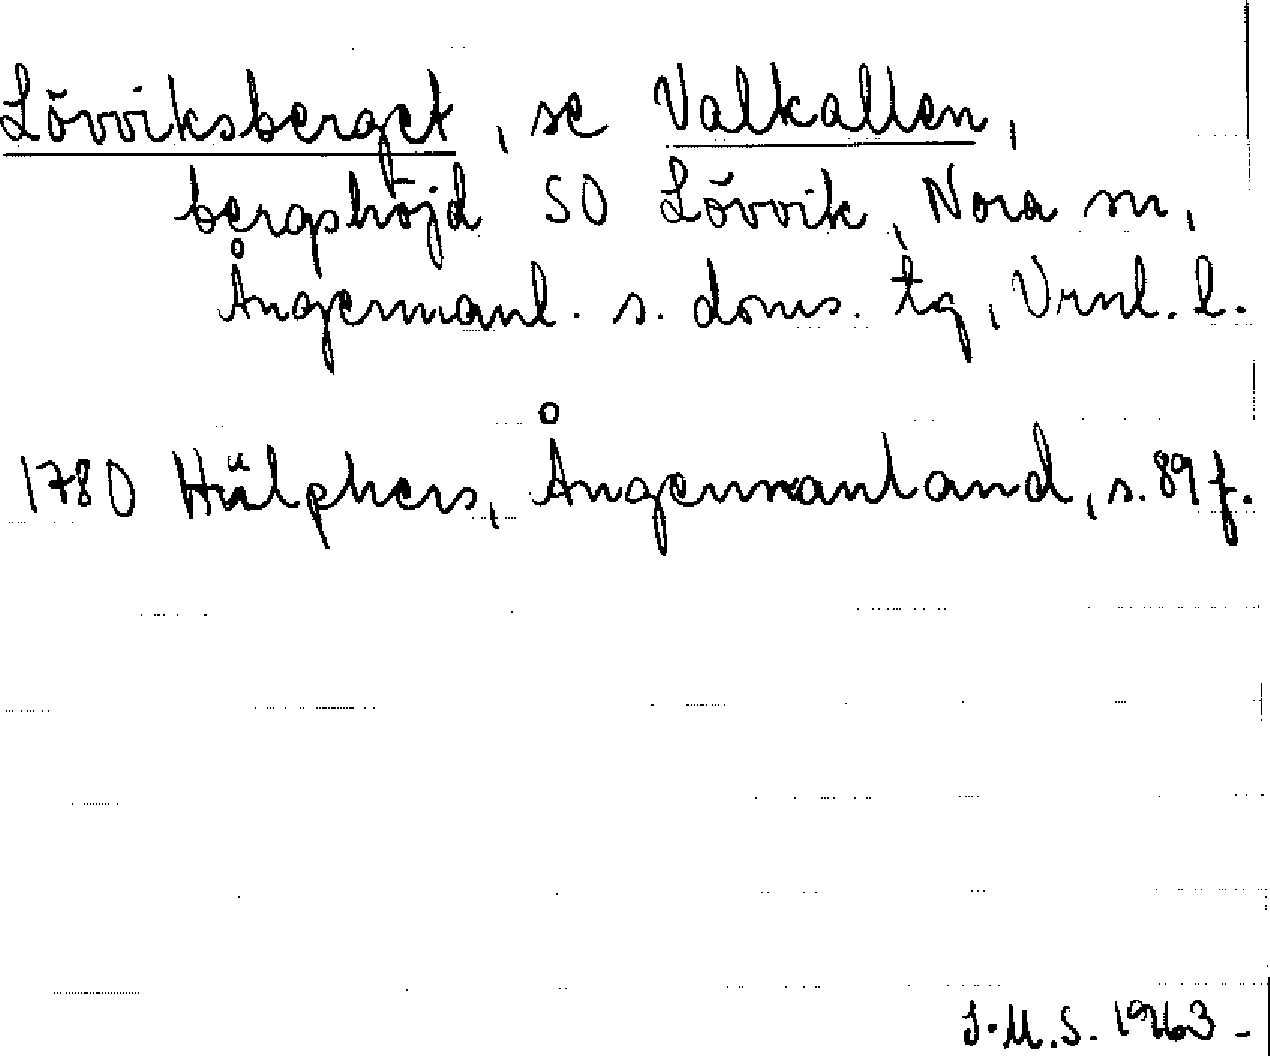 Lövviksberget, se Valkallen,
bergshöjd SO Lövvik, Nora sn,
Ångermanl. s. doms. tg, Vrnl. l.
1780 Hülphers, Ångermanland, s. 89 f.
S.M.S. 1963 -